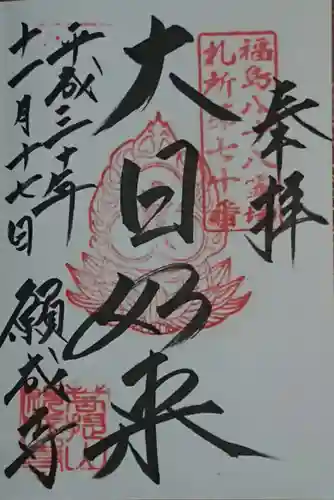 奉拝
福島八十八霊場
札所第七十番
大日如来
平成三十年
十一月十七日
願成寺